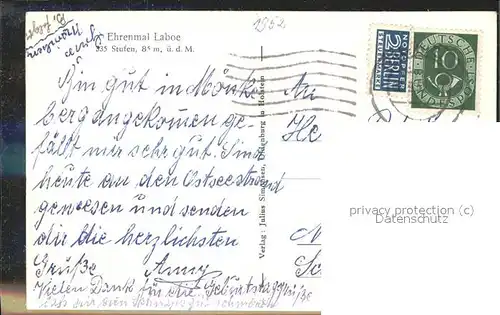 1952
Ehrenmal Laboe
335 Stufen, 85 m, ü. d. M.
Bin gut in Mönke
berg angekomen ge-
fällt mir sehr gut. Sind
heute an den Ostseestrand
gewesen und senden
dir die herzlichsten
Grüße Anny
Vielen Dank für die Geburtstaggrüße
Verlag: Julius Simonsen, Oldenburg in Holstein
An
He
NOTOPFER
2 BERLIN
STEUERMARKE
DEUTSCHE BUNDESPOST
10
privacy protection (c)
Datenschutz